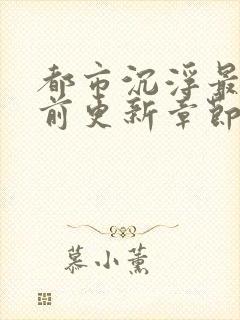 都市沉浮最
前更新章節
慕小薰